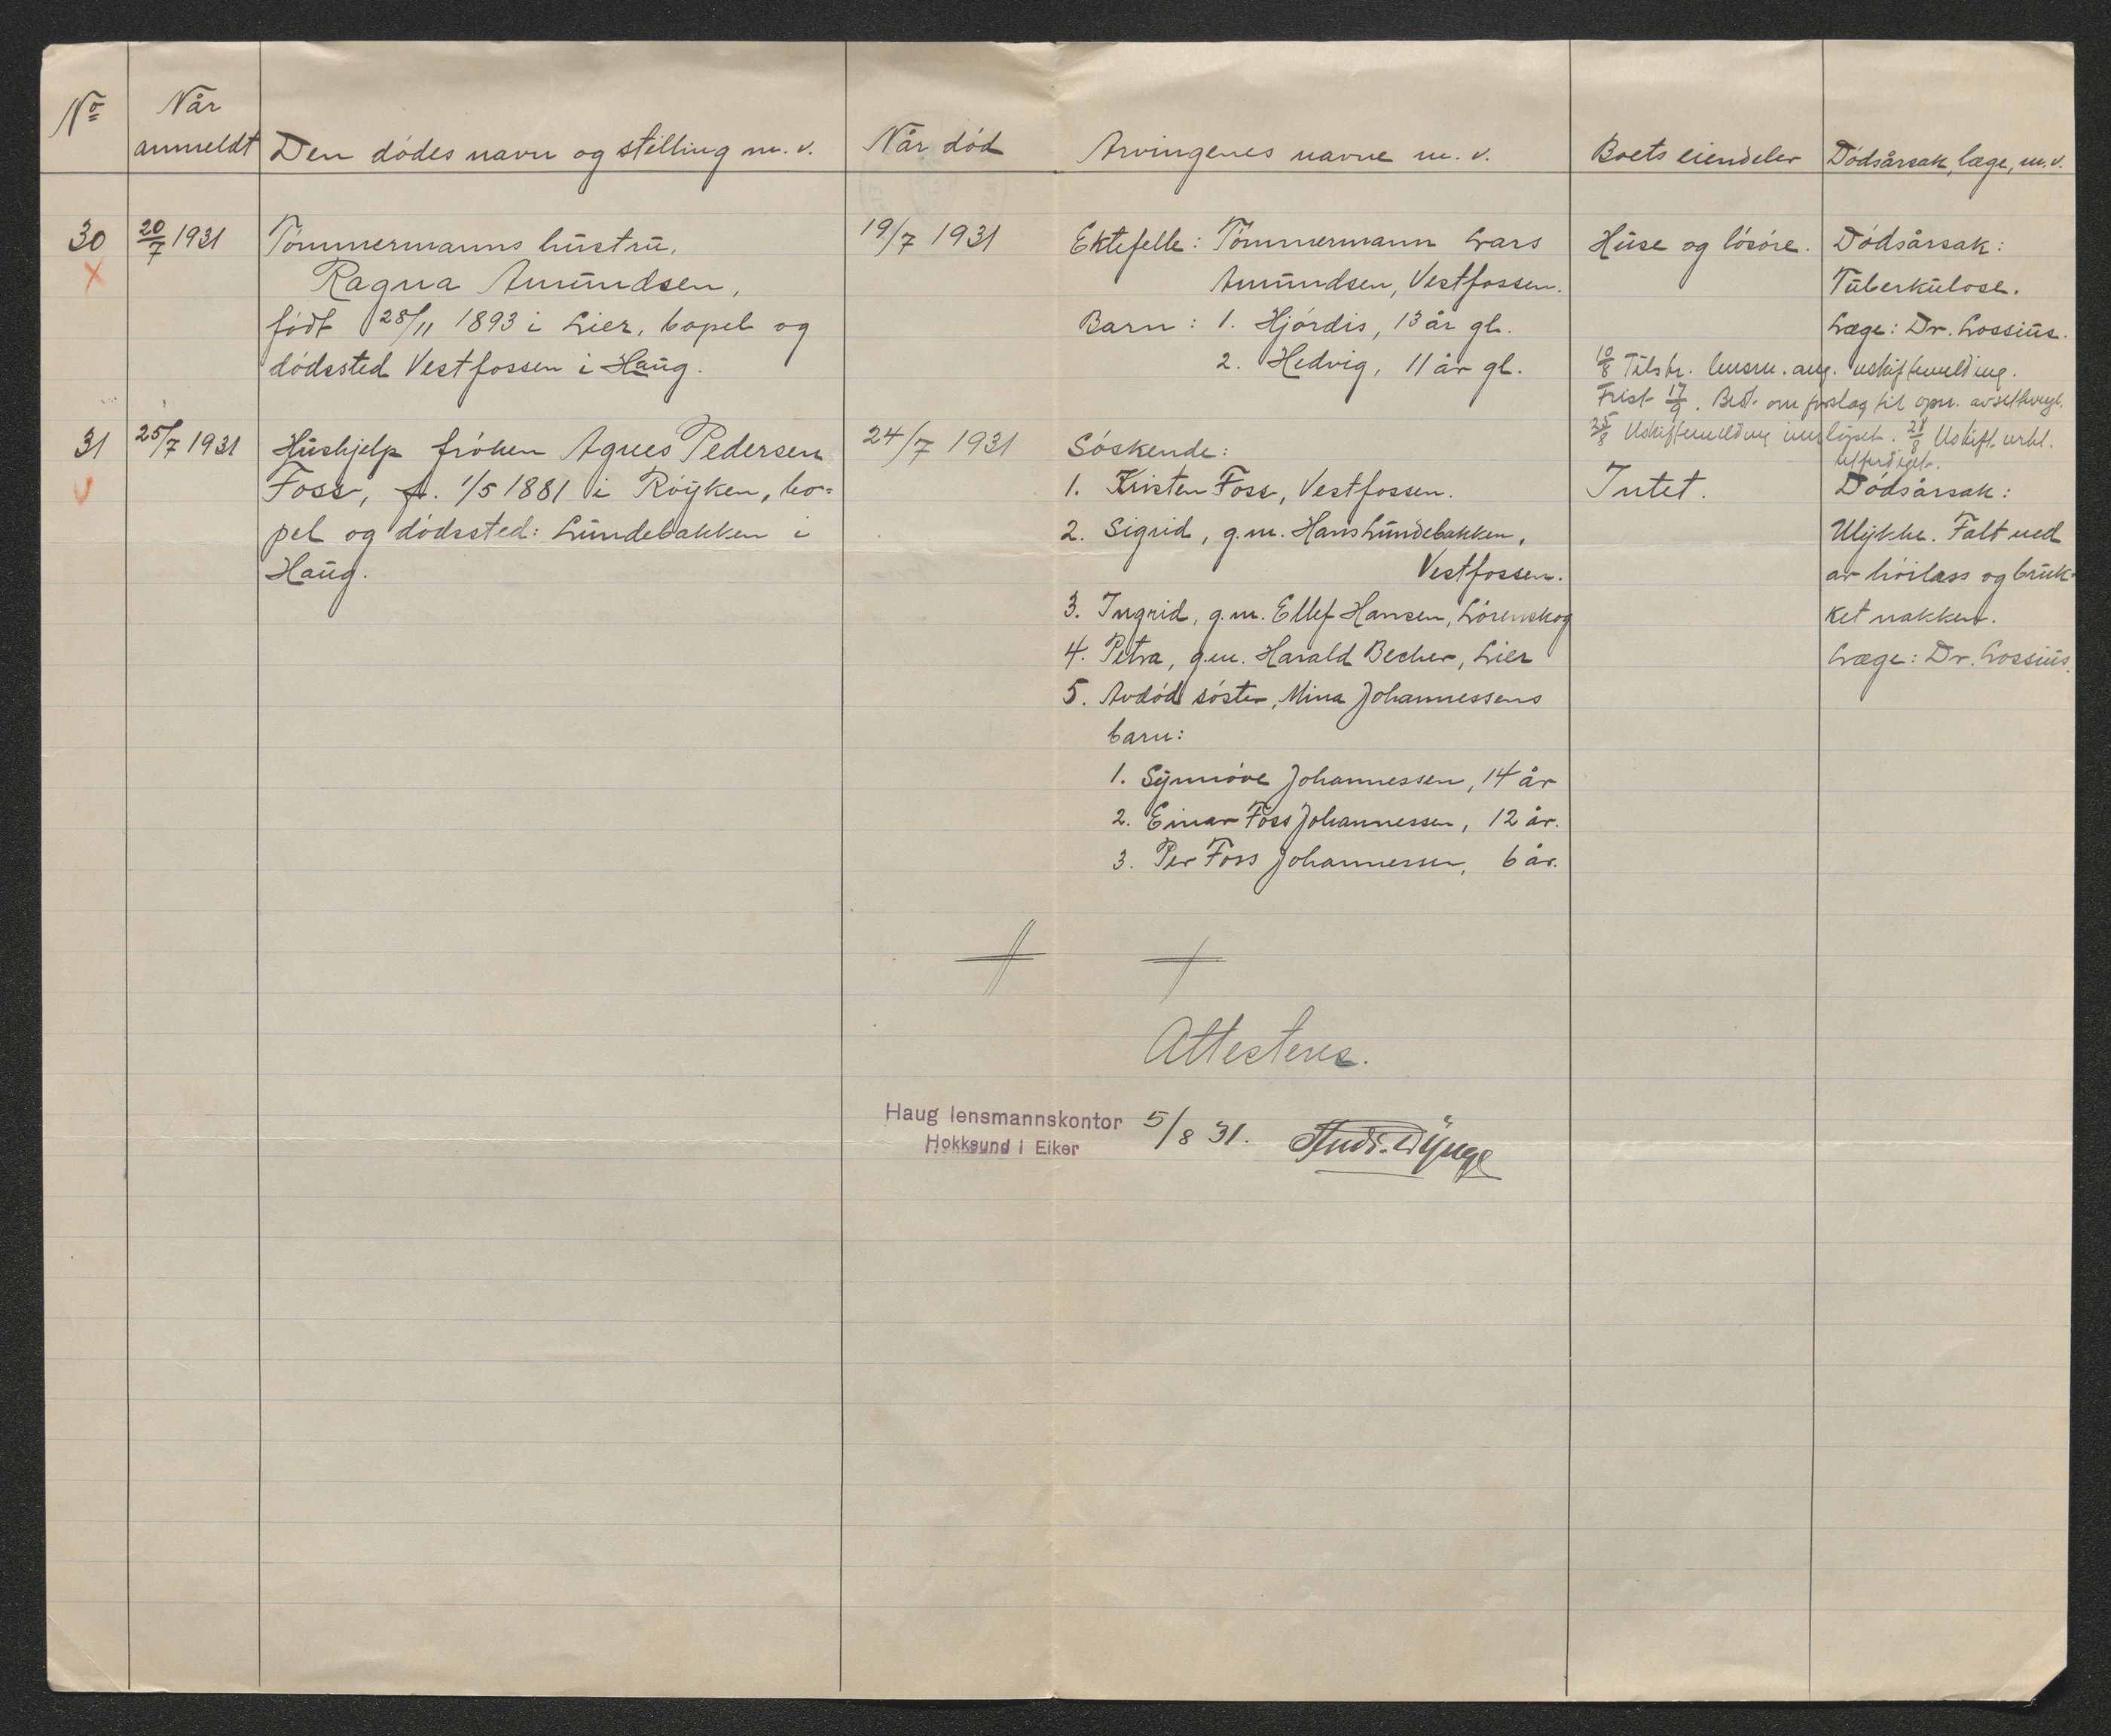 No Når anmeldt Den dødes navn og stilling m. v. Når død Arvingenes navne m. v. Boets eiendeler Dødsårsak, læge, m.v.
30 20/7 1931 Tømmermanns hustru, 19/7 1931 Ektefelle: Tømmermann Lars Huse og løsøre. Dødsårsak:
X Ragna Amundsen, Amundsen, Vestfossen. Tuberkulose.
født 28/11 1893 i Lier, bopel og Barn: 1. Hjørdis, 13 år gl. Læge: Dr. Lossius.
dødssted Vestfossen i Haug. 2. Hedvig, 11 år gl.
10/8 Tilskr. lensm. ang. uskiftemelding.
Frist 17/9. Bedt om forslag til opn.
25/8 Uskiftemelding innløpet. 28/8 Uskift. erkl.
utferdiget.
31 25/7 1931 Hushjelp frøken Agnes Pedersen 24/7 1931 Søskende:
Foss, f. 1/5 1881 i Røyken, bo= 1. Kristen Foss, Vestfossen. Intet. Dødsårsak:
pel og dødssted: Lundebakken i 2. Sigrid, g.m. Hans Lundebakken, Ulykke. Falt ned
Haug. Vestfossen. av høilass og bruk-
3. Ingrid, g.m. Ellef Hansen, Lørenskog ket nakken.
4. Petra, g.m. Harald Becher, Lier Læge: Dr. Lossius.
5. Avdød søster, Mina Johannessens
barn:
1. Synnøve Johannessen, 14 år
2. Einar Foss Johannessen, 12 år.
3. Per Foss Johannessen, 6 år.
Attesteres.
Haug lensmannskontor 5/8 31.
Hokksund i Eiker